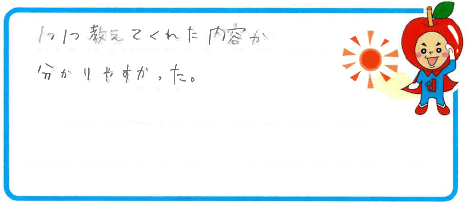 1つ1つ教えてくれた内容が
分かりやすかった。